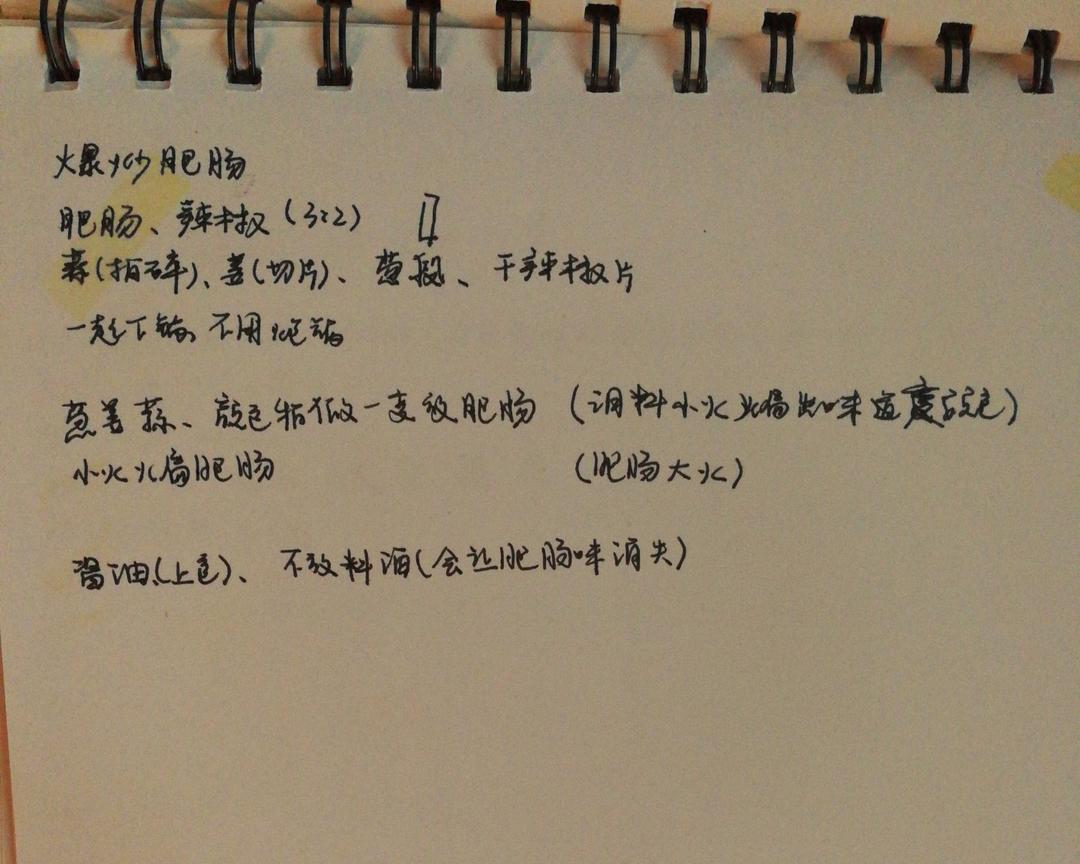 爆炒肥肠
肥肠、辣椒(3:2)
蒜(拍碎)、姜(切片)、葱段、干辣椒片
一起下锅 不用炝锅
葱姜蒜、颜色稍微一变放肥肠 (调料小火煸出味道变颜色)
小火煸肥肠 (肥肠大火)
酱油(上色)、不放料酒(会让肥肠味消失)